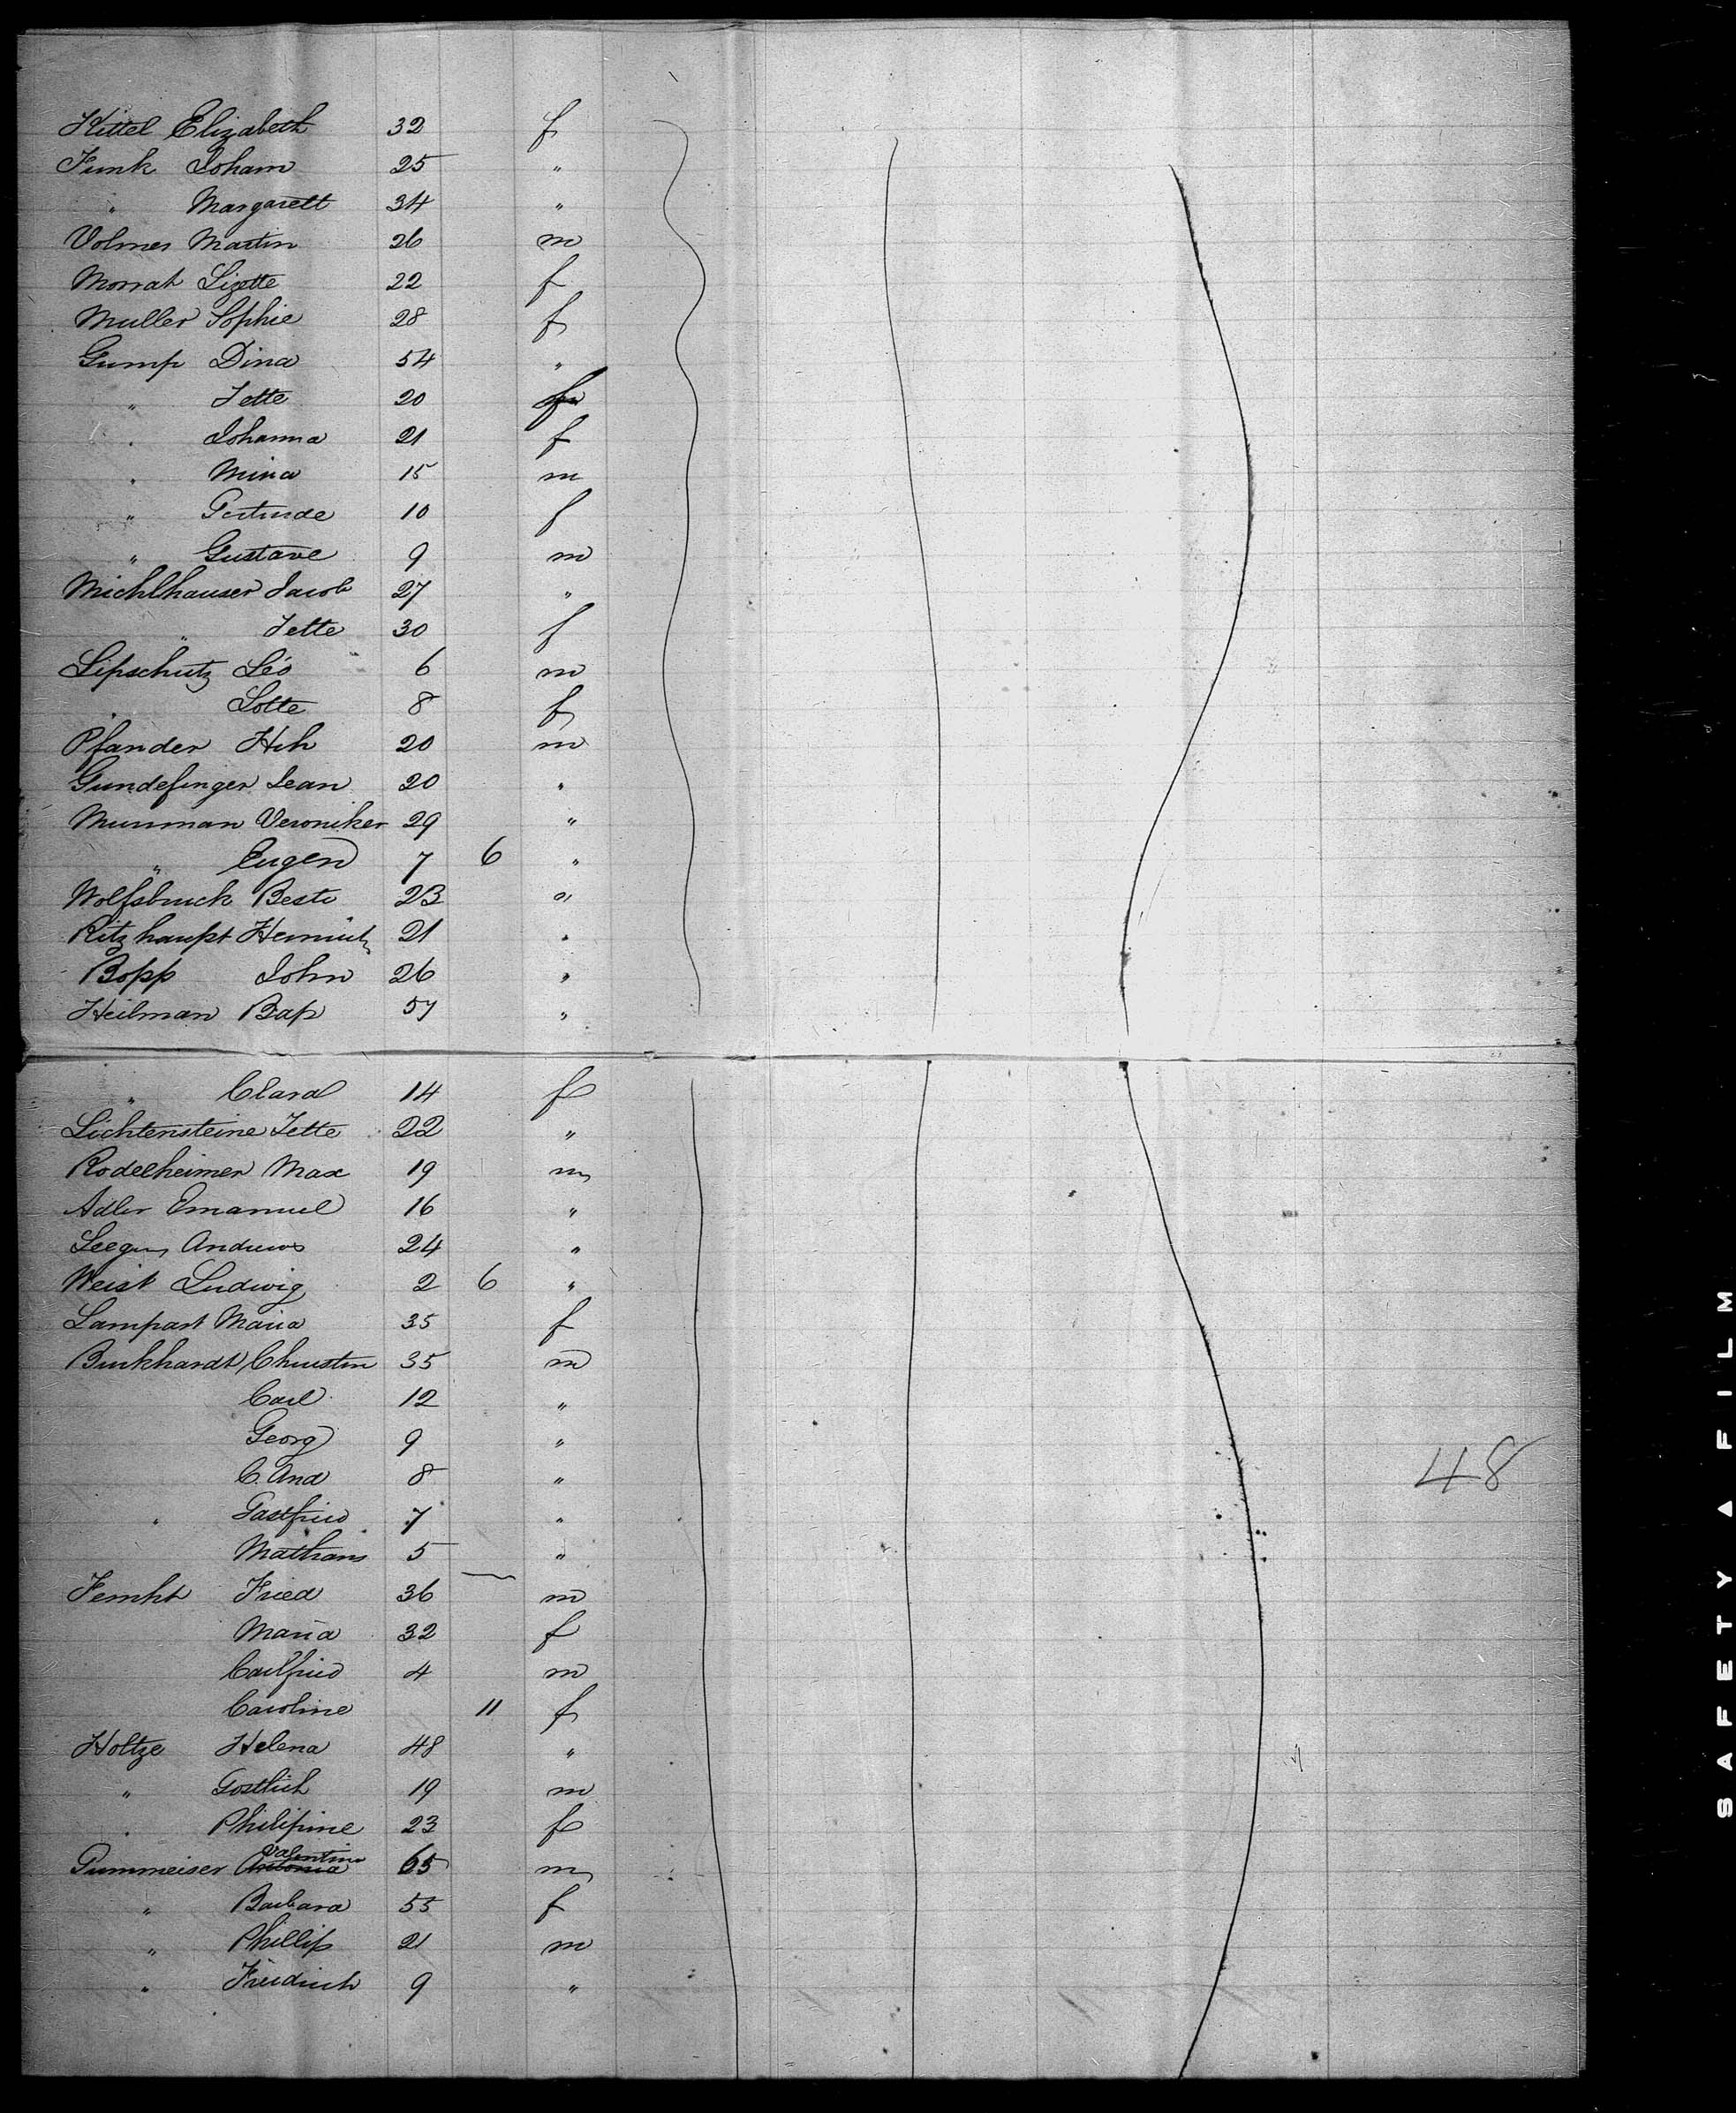 Kittel Elizabeth 32 f
Funk Joham 25 "
" Margarett 34 "
Volmer Martin 26 m
Morrat Lizette 22 f
Muller Sophie 28 f
Gump Dina 54 "
" Jette 20 f
" Johanna 21 f
" Mina 15 m
" Gertrude 10 f
" Gustave 9 m
Michlhauser Jacob 27 "
" Jette 30 f
Lipschutz Léo 6 m
" Lotte 8 f
Pfander Hch 20 m
Gundefinger Jean 20 "
Munman Veroniker 29 "
" Eugen 7 6 "
Wolfsbruck Beste 23 "
Ritzhaupt 21 "
Bopp John 26 "
Heilman Bap 57 "
" Clara 14 f
Lichtensteine Jette 22 "
Rodelheimer Max 19 m
Adler Emanuel 16 "
Andrews 24 "
Weist Ludwig 2 6 "
Lampart Maria 35 f
Burkhardt Christin 35 m
Carl 12 "
Georg 9 "
C. And 8 "
" Gastfried 7 "
Mathans 5 "
Femht Fried 36 m
Maria 32 f
Carlfried 4 m
Caroline 11 f
Holtze Helena 48 "
" Gostlich 19 m
" Philipine 23 f
Valentine
Pummeiser Antonia 65 m
" Barbara 55 f
" Phillip 21 m
" Friedrich 9 "
48
SAFETY ▲ FILM